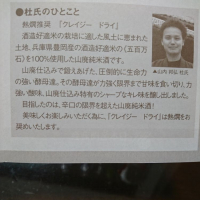 ●杜氏のひとこと
熱燗推奨 「クレイジー ドライ」
酒造好適米の栽培に適した風土に恵まれた
土地、兵庫県豊岡産の酒造好適米の〈五百万
石〉を100%使用した山廃純米酒です。
山廃仕込みで超えあげた、圧倒的に生命力
の強い酵母達。その酵母達が力強く限界まで甘味を食い切り、力
強い酸味、山廃仕込み特有のシャープなキレ味を醸し出しました。
目指したのは、辛口の限界を超えた山廃純米酒！
美味しくお楽しみいただく為に、「クレイジー ドライ」は熱燗をお
奨めいたします。
杜氏